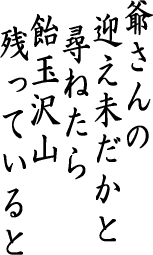 爺さんの
迎え未だかと
尋ねたら
飴玉沢山
残っていると